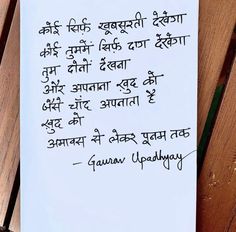 कोई सिर्फ़ खूबसूरती देखेगा
कोई तुममें सिर्फ़ दाग देखेगा
तुम दोनों देखना
और अपनाना ख़ुद को
जैसे चाँद अपनाता है
ख़ुद को
अमावस से लेकर पूनम तक
— Gaurav Upadhyay